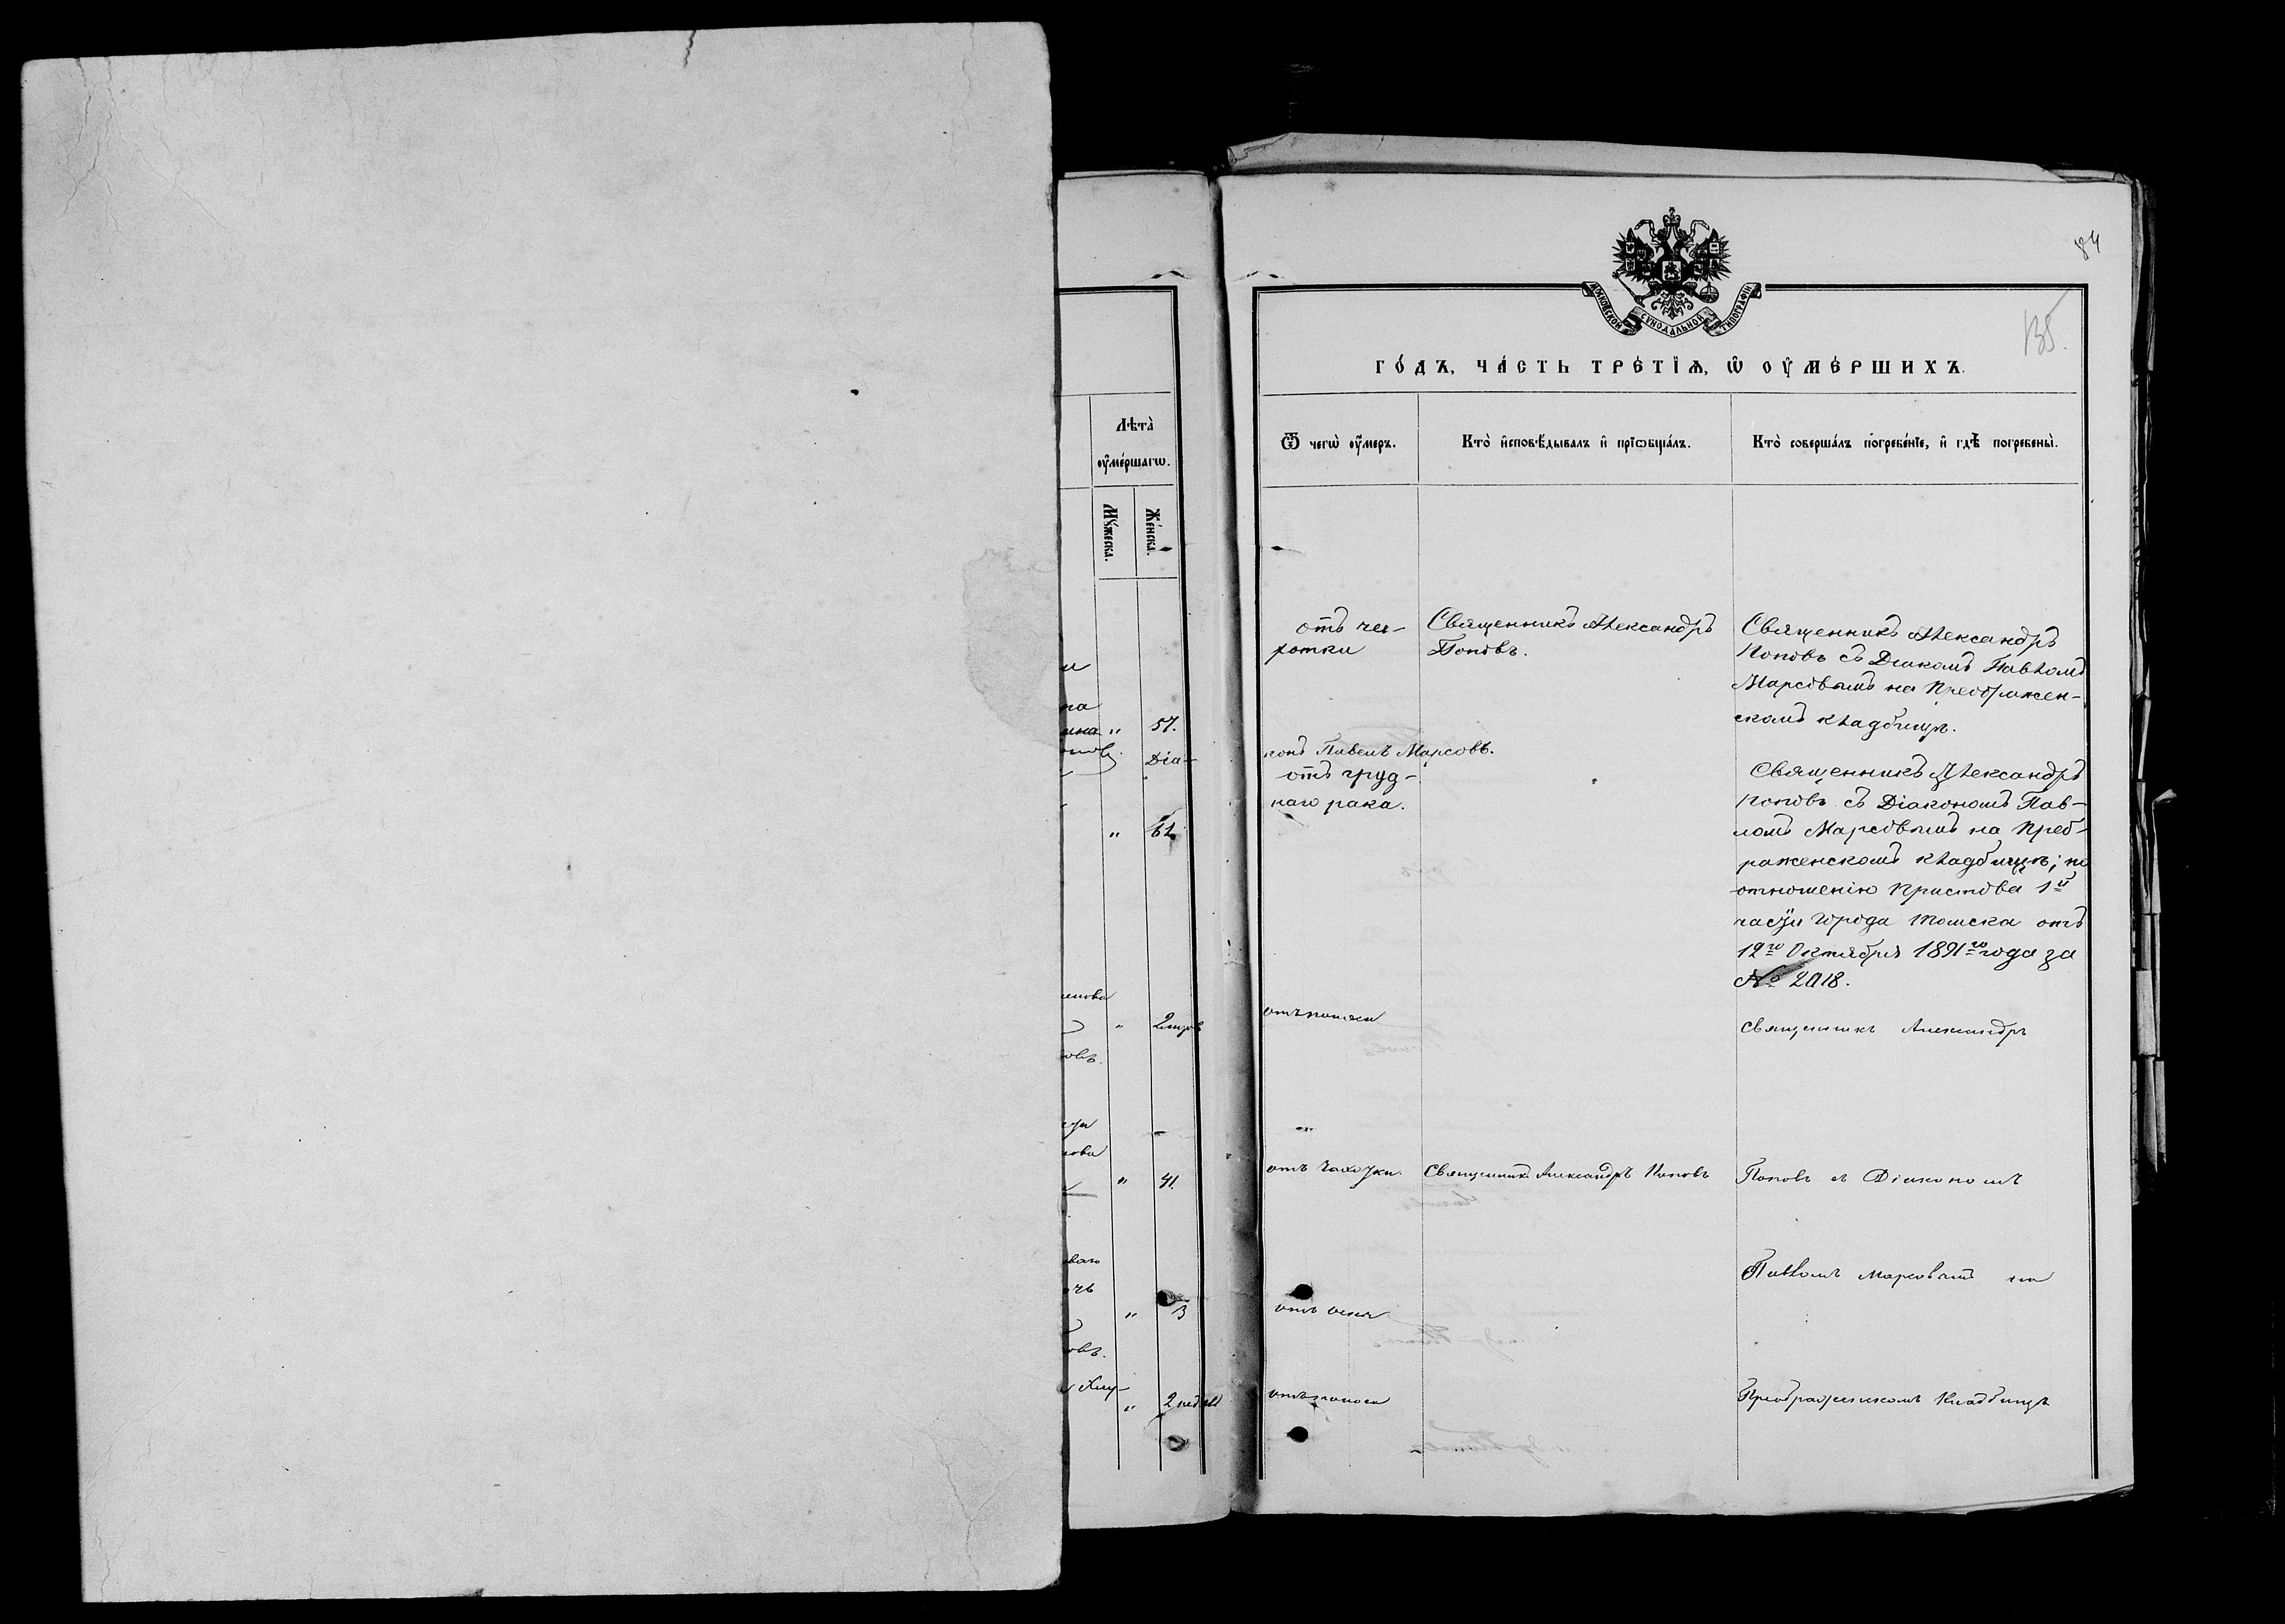 84
135.
МОСКОВСКОЙ СѴНОДАЛЬНОЙ ТИПОГРАФІИ
ГО́ДЪ, ЧА́СТЬ ТРЕ́ТІѦ, Ѡ҆ ОУ҆МЕ́РШИХЪ.
Лѣта̀
оу҆ме́ршагѡ.
Мꙋ́жеска.
Же́нска.
Ѿ чегѡ̀ оу҆́меръ.
Кто̀ и҆сповѣ́дывалъ и҆ прїѡбща́лъ.
Кто̀ соверша́лъ погребе́нїе, и҆ гдѣ̀ погребены̀.
" 57.
Діа-
" 62
" 2 мѣс
" 41.
" 3
" 2 недѣл
отъ чахотки
Священникъ Александръ
Поповъ.
Священникъ Александръ
Поповъ съ Діакомъ Павломъ
Марсовымъ на Преображен-
скомъ кладбищѣ.
конъ Павелъ Марсовъ.
отъ груд-
наго рака.
Священникъ Александръ
Поповъ съ Діакономъ Пав-
ломъ Марсовымъ на Прео-
браженскомъ кладбищѣ; по
отношенію Пристава 1й
части города Томска отъ
12го Октября 1891го года за
№ 2018.
отъ поноса
Священникъ Александръ
отъ Чахотки.
Священникъ Александръ Поповъ
Поповъ съ Діакономъ
Павломъ Марсовымъ на
отъ оспы
отъ поноса
Преображенскомъ Кладбищѣ